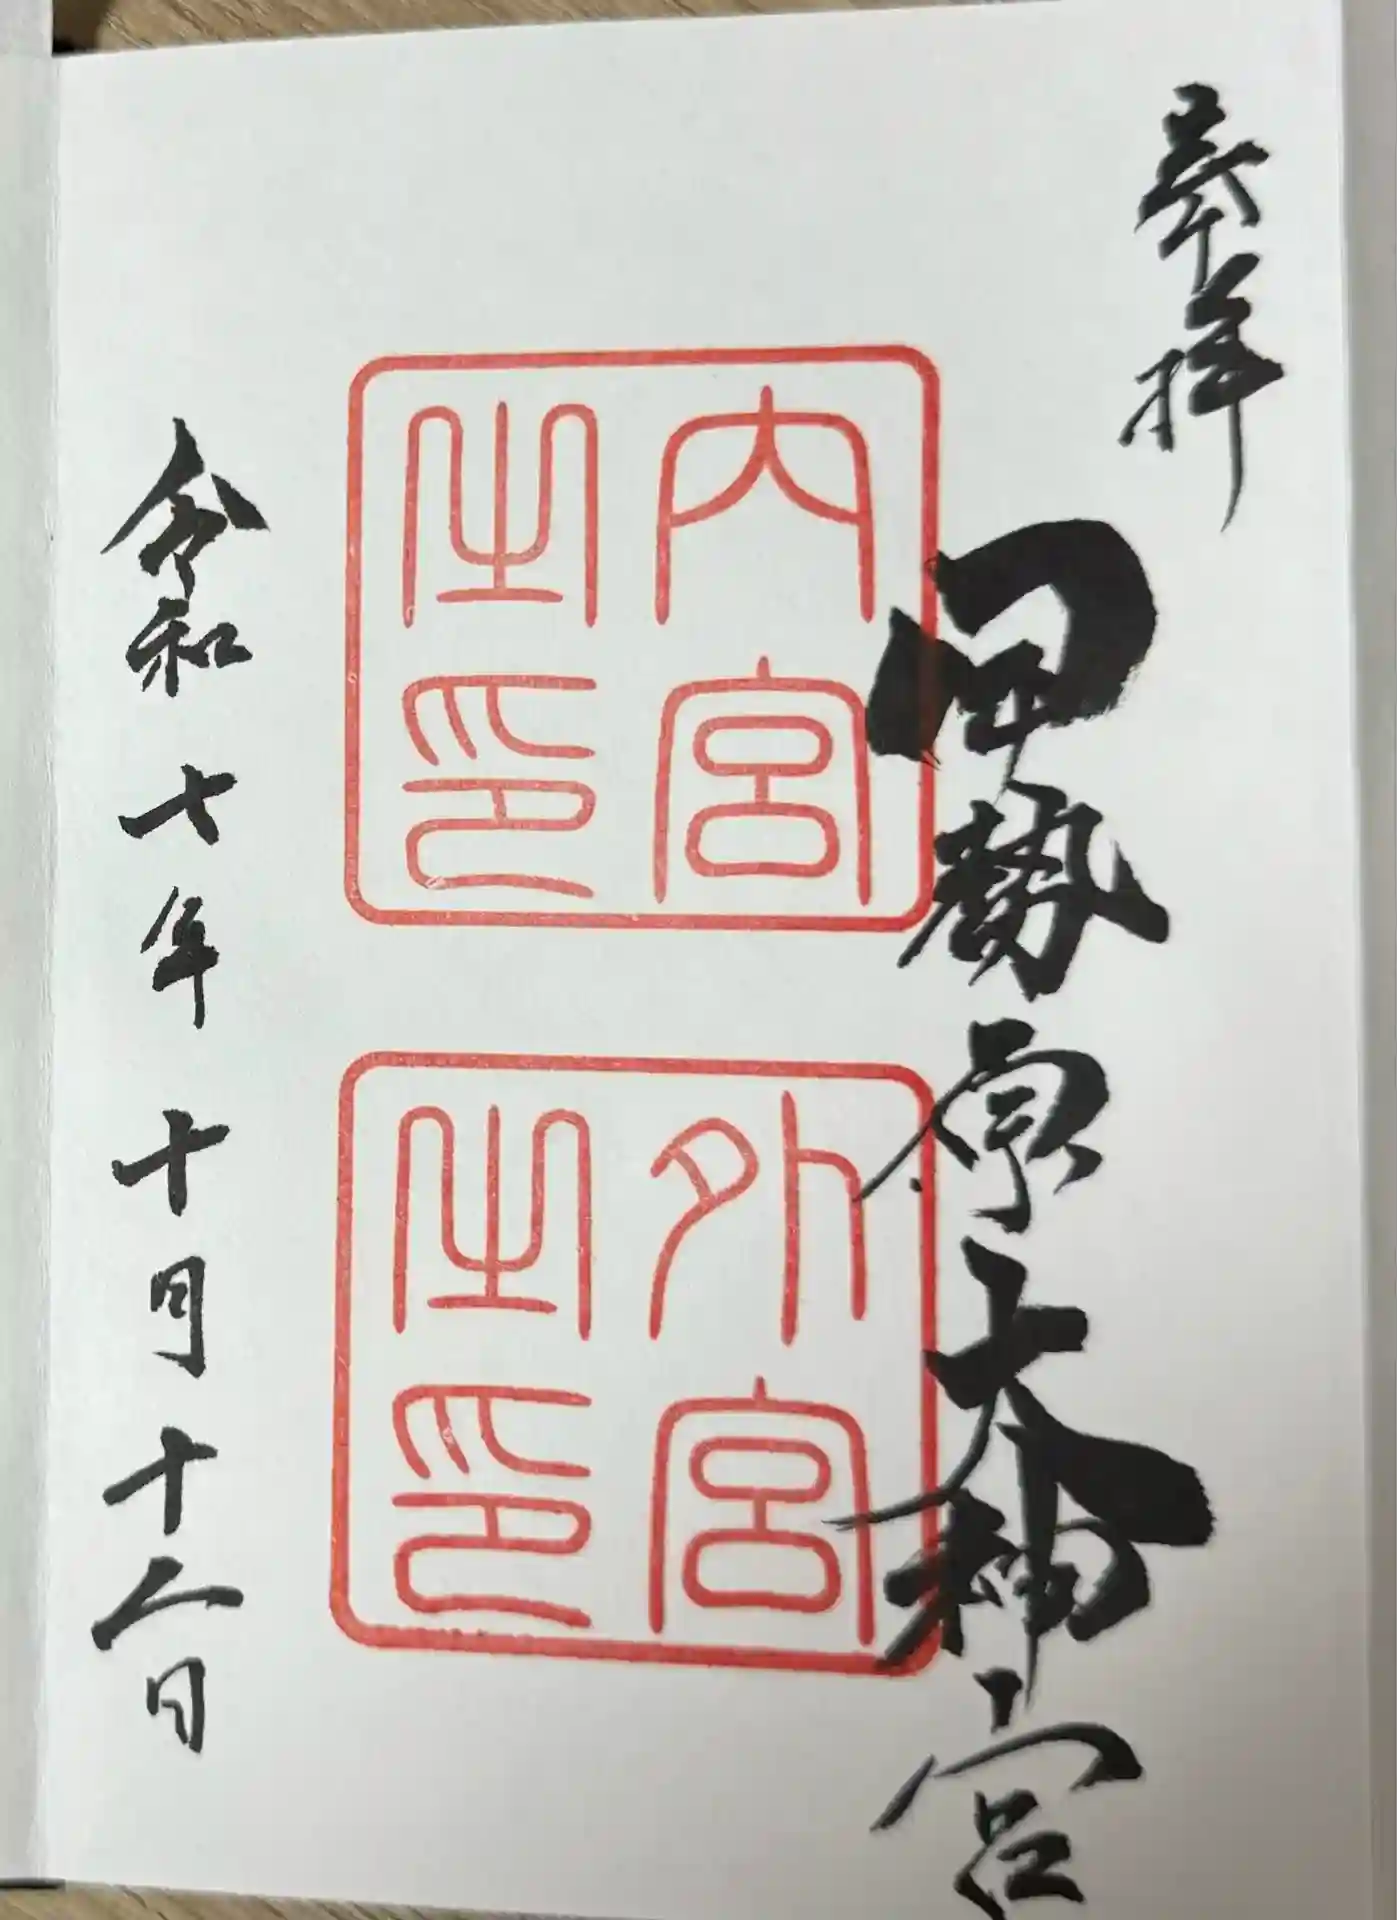 奉拝
伊勢原大神宮
内宮
之印
外宮
之印
令和七年十月十二日